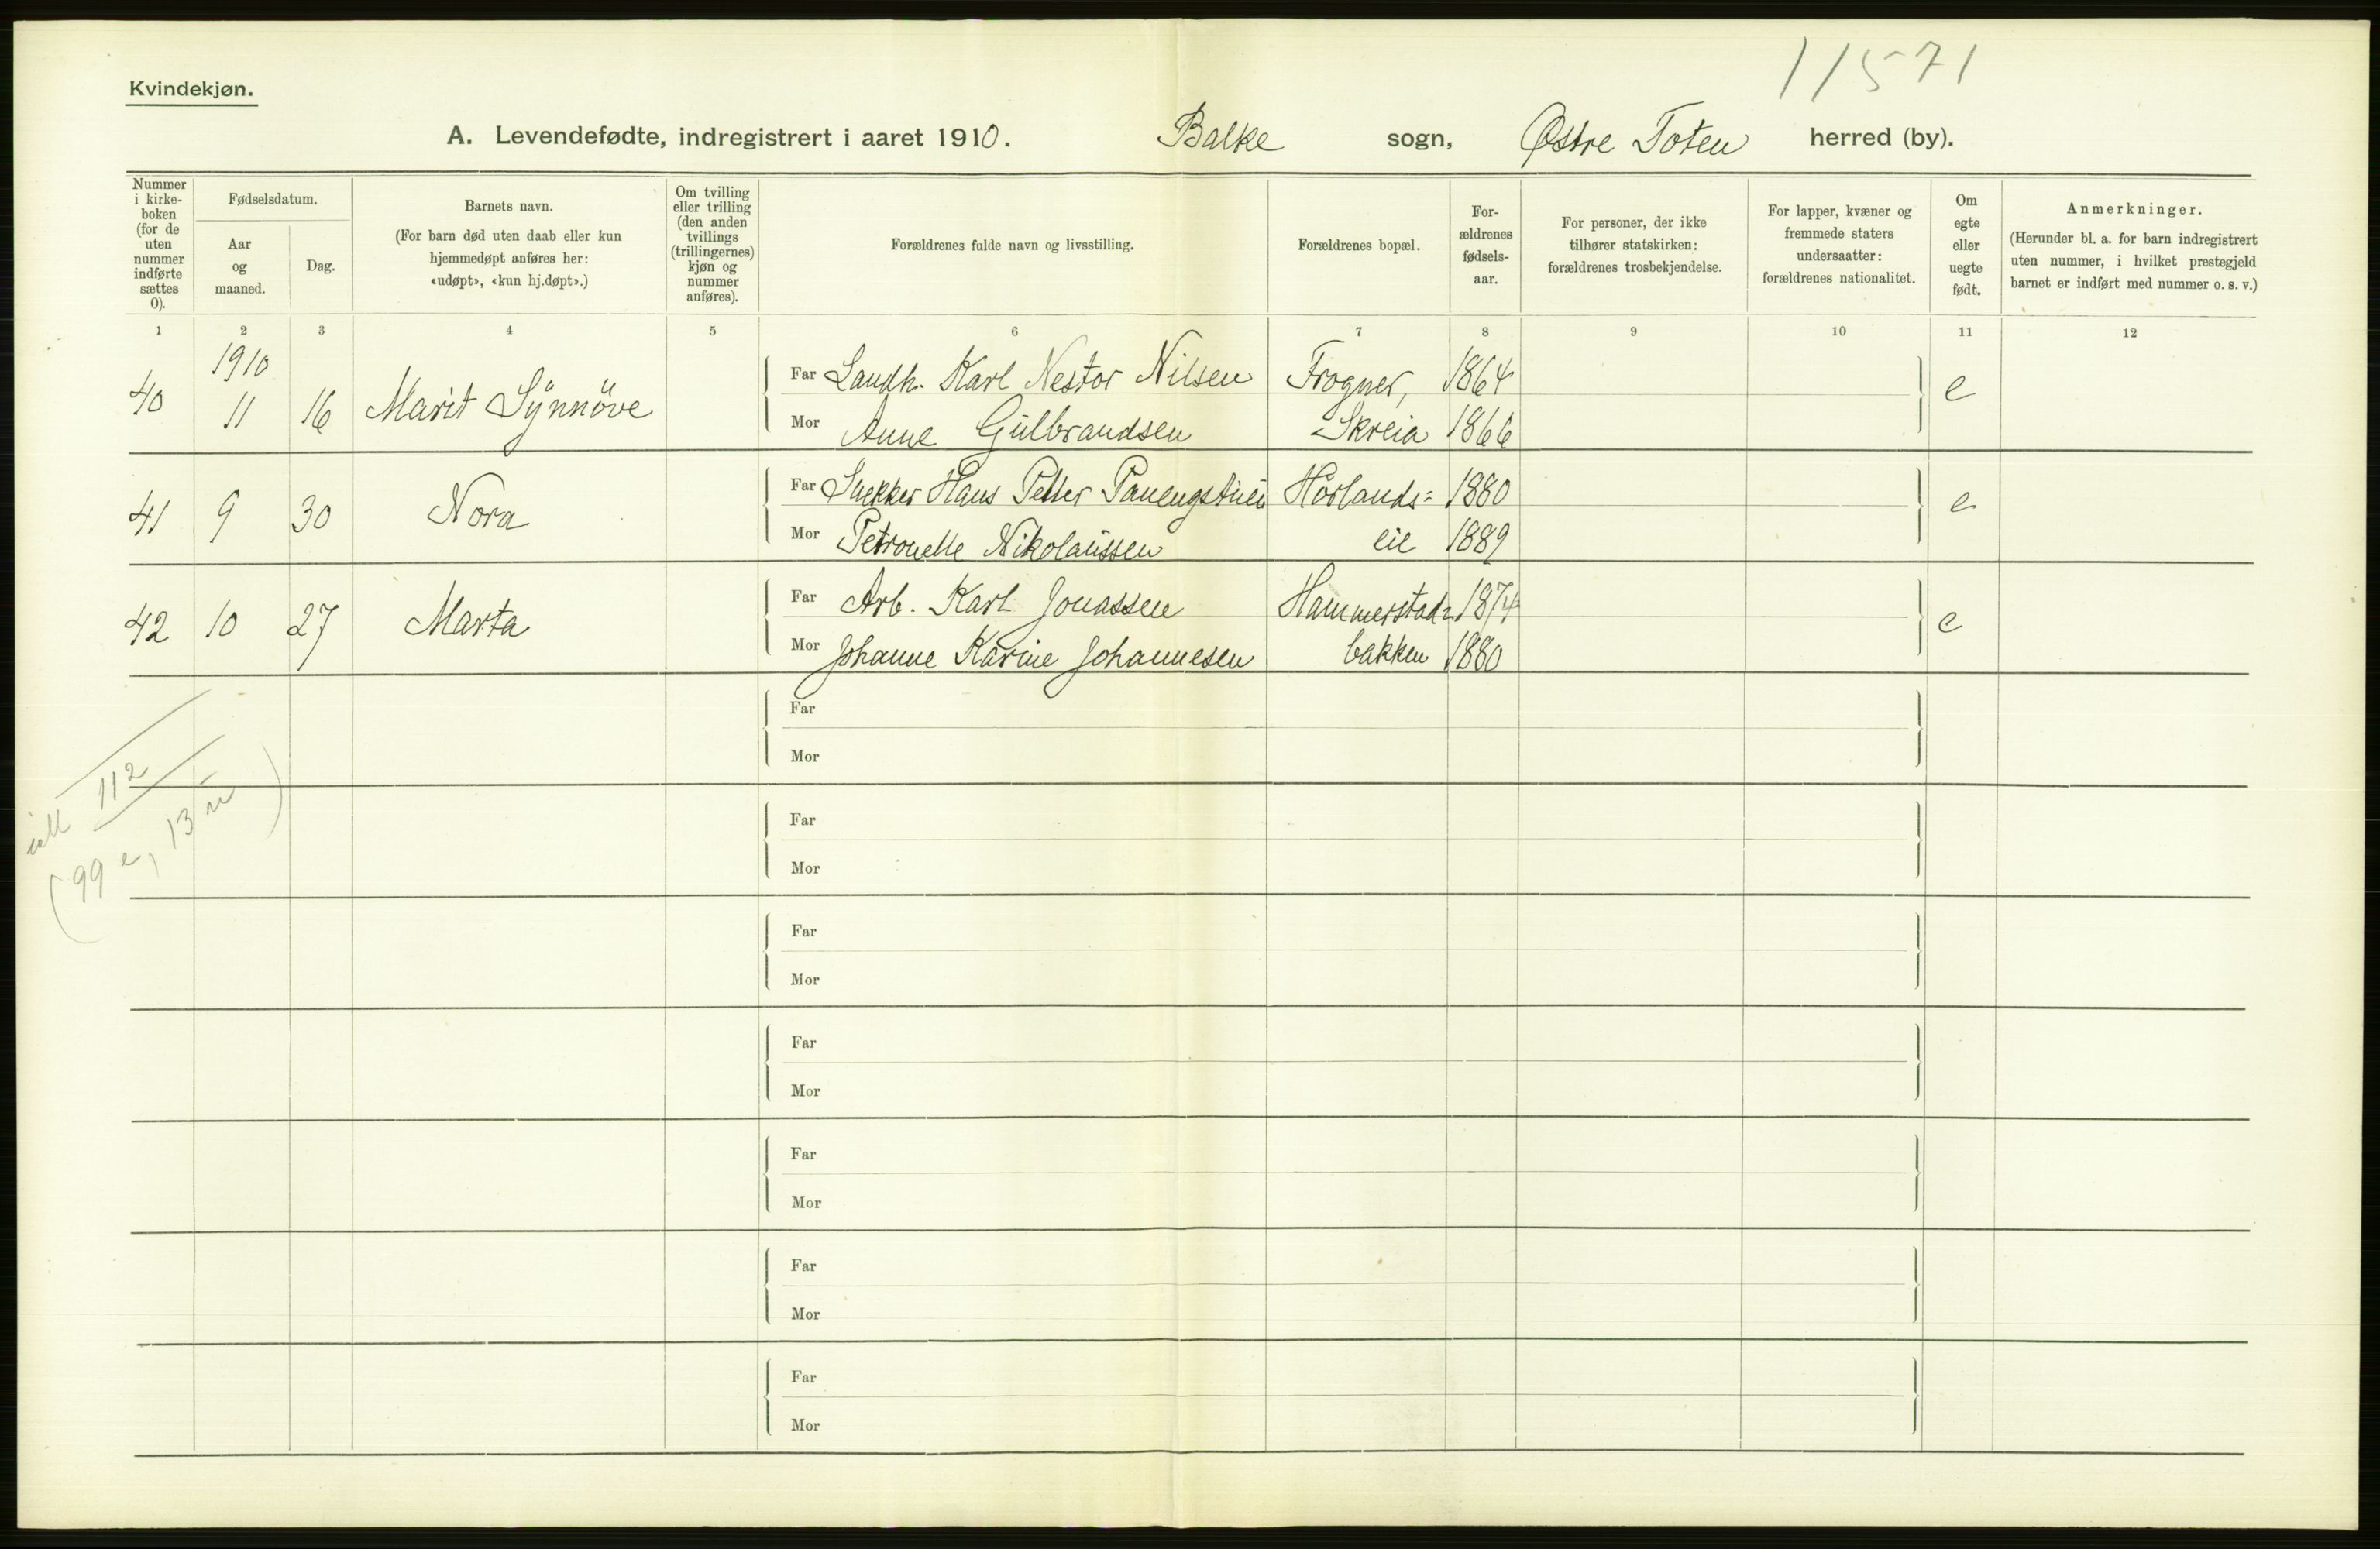 11571
Kvindekjøn.
A. Levendefødte, indregistrert i aaret 1910. Balke sogn, Østre Toten herred (by).
Nummer
i kirke-
boken
(for de
uten
nummer
indførte
sættes
0).
Fødselsdatum.
Aar
og
maaned.
Dag.
Barnets navn.
(For barn død uten daab eller kun
hjemmedøpt anføres her:
«udøpt», «kun hj.døpt».)
Om tvilling
eller trilling
(den anden
tvillings
(trillingernes)
kjøn og
nummer
anføres).
Forældrenes fulde navn og livsstilling.
Forældrenes bopæl.
For-
ældrenes
fødsels-
aar.
For personer, der ikke
tilhører statskirken:
forældrenes trosbekjendelse.
For lapper, kvæner og
fremmede staters
undersaatter:
forældrenes nationalitet.
Om
egte
eller
uegte
født.
Anmerkninger.
(Herunder bl. a. for barn indregistrert
uten nummer, i hvilket prestegjeld
barnet er indført med nummer o. s. v.)
1 2 3 4 5 6 7 8 9 10 11 12
1910
40 11 16 Marit Synnöve e
Far Landh. Karl Nestor Nilsen Frogner, 1864
Mor Anne Gulbrandsen Skreia 1866
41 9 30 Nora e
Far Hans Petter Horlands= 1880
Mor Petronelle Nikolaussen eie 1889
42 10 27 Marta e
Far Arb. Karl Jonassen Hammerstad= 1874
Mor Johanne Karine Johannesen bakken 1880
Far
Mor
112
(99 e, 13 u)
Far
Mor
Far
Mor
Far
Mor
Far
Mor
Far
Mor
Far
Mor